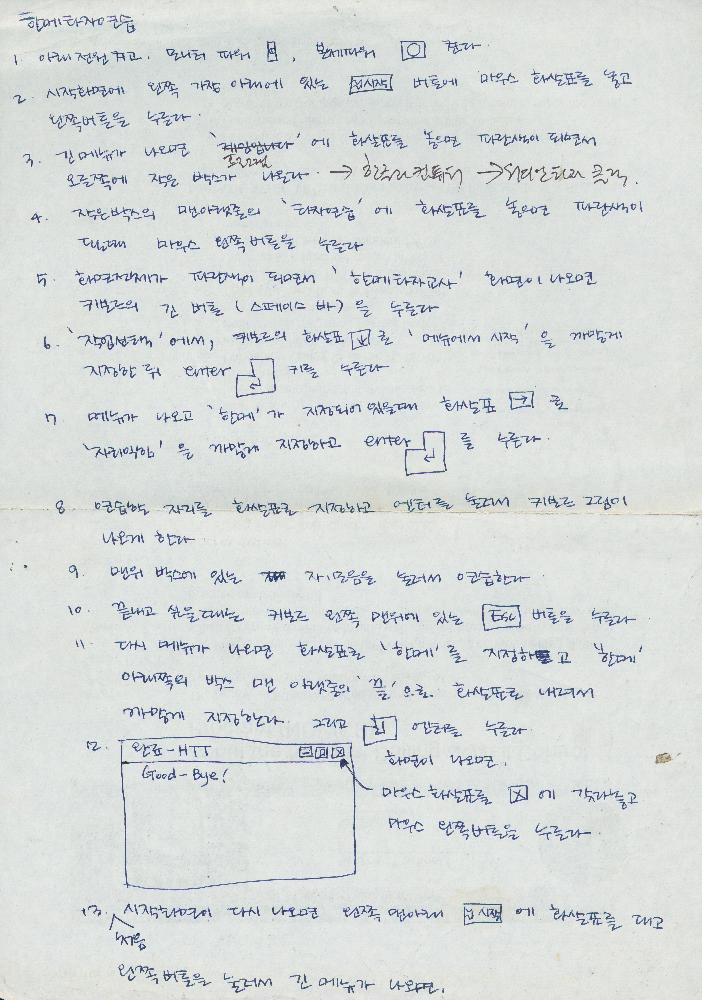 한메타자연습
1. 아래전원 켜고. 모니터 파워 , 본체파워 켠다.
2. 시작화면에 왼쪽 가장 아래에 있는 시작 버튼에 마우스 화살표를 놓고
왼쪽버튼을 누른다.
3. 긴메뉴가 나오면 '프로그램'에 화살표를 놓으면 파란색이 되면서
오른쪽에 작은 박스가 나온다. → 한글과컴퓨터 → 클릭.
4. 작은박스의 맨아랫줄의 '타자연습'에 화살표를 놓으면 파란색이
될때 마우스 왼쪽버튼을 누른다
5. 화면전체가 파란색이 되면서 '한메타자교사' 화면이 나오면
키보드의 긴 버튼 (스페이스 바)을 누른다
6. '작업선택'에서, 키보드의 화살표 ↓ 로 '메뉴에서 시작'을 까맣게
지정한 뒤 enter ↵ 키를 누른다.
7 메뉴가 나오고 '한메'가 지정되어 있을때 화살표 → 로
'자리익힘'을 까맣게 지정하고 enter ↵ 를 누른다.
8 연습할 자리를 화살표로 지정하고 엔터를 눌러서 키보드 그림이
나오게 한다.
9. 맨위 박스에 있는 자·모음을 눌러서 연습한다.
10. 끝내고 싶을때는 키보드 왼쪽 맨위에 있는 Esc 버튼을 누른다.
11 다시 메뉴가 나오면 화살표로 '한메'를 지정하고 '한메'
아래쪽의 박스 맨 아랫줄의 '끝'으로 화살표로 내려서
까맣게 지정한다. 그리고 ↵ 엔터를 누른다.
12. 완료-HTT - □ X 화면이 나오면.
Good-Bye!
마우스 화살표를 X 에 갖다놓고
마우스 왼쪽버튼을 누른다.
13. 시작화면이 다시 나오면 왼쪽 맨아래 시작 에 화살표를 대고
처음
왼쪽버튼을 눌러서 긴 메뉴가 나오면,